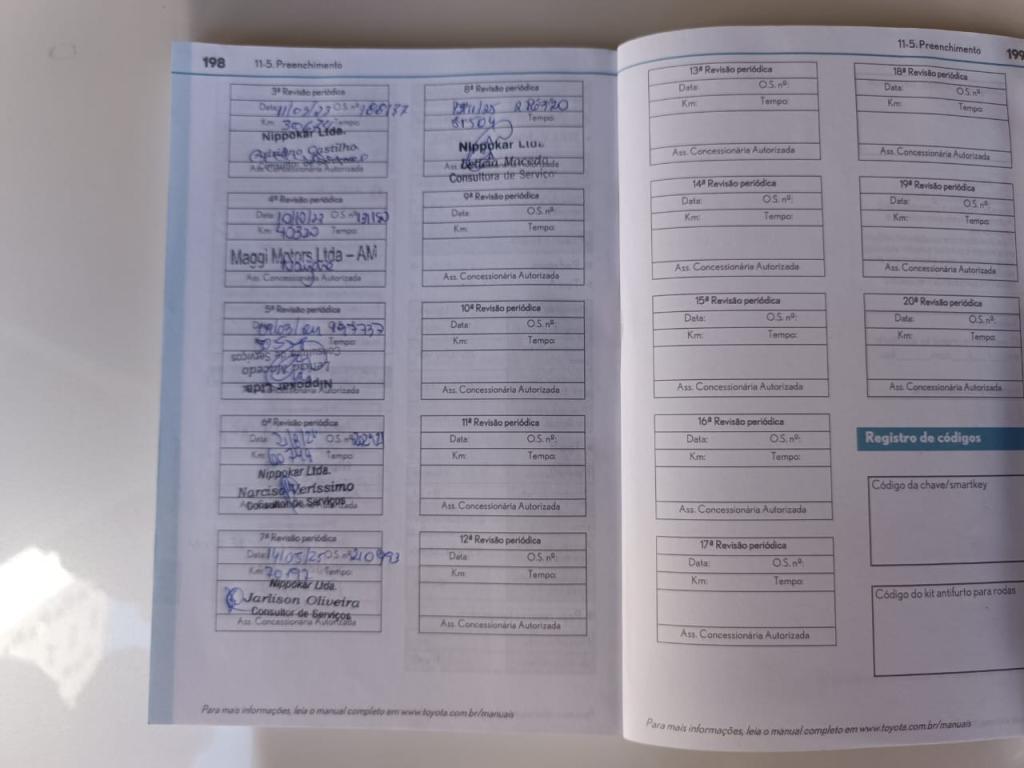 198 11-5. Preenchimento
3ª Revisão periódica
Data: O.S. nº:
Km: Tempo:
Nippokar Ltda.
Castilho
Ass. Concessionária Autorizada
4ª Revisão periódica
Data: 10/10/23 O.S. nº:
Km: 40320 Tempo:
Maggi Motors Ltda – AM
Ass. Concessionária Autorizada
5ª Revisão periódica
Tempo:
Consultora de Serviços
Nippokar Ltda.
6ª Revisão periódica
Data: O.S. nº:
Km: 60744 Tempo:
Nippokar Ltda.
Narciso Veríssimo
Consultor de Serviços
7ª Revisão periódica
Data: 14/05/25 O.S. nº: 210993
Km: 70192 Tempo:
Nippokar Ltda.
Jarlison Oliveira
Consultor de Serviços
Ass. Concessionária Autorizada
8ª Revisão periódica
81504 Tempo:
Nippokar Ltda.
Letícia Macedo
Consultora de Serviço
9ª Revisão periódica
Data: O.S. nº:
Km: Tempo:
Ass. Concessionária Autorizada
10ª Revisão periódica
Data: O.S. nº:
Km: Tempo:
Ass. Concessionária Autorizada
11ª Revisão periódica
Data: O.S. nº:
Km: Tempo:
Ass. Concessionária Autorizada
12ª Revisão periódica
Data: O.S. nº:
Km: Tempo:
Ass. Concessionária Autorizada
Para mais informações, leia o manual completo em www.toyota.com.br/manuais
11-5. Preenchimento 199
13ª Revisão periódica
Data: O.S. nº:
Km: Tempo:
Ass. Concessionária Autorizada
14ª Revisão periódica
Data: O.S. nº:
Km: Tempo:
Ass. Concessionária Autorizada
15ª Revisão periódica
Data: O.S. nº:
Km: Tempo:
Ass. Concessionária Autorizada
16ª Revisão periódica
Data: O.S. nº:
Km: Tempo:
Ass. Concessionária Autorizada
17ª Revisão periódica
Data: O.S. nº:
Km: Tempo:
Ass. Concessionária Autorizada
18ª Revisão periódica
Data: O.S. nº:
Km: Tempo:
Ass. Concessionária Autorizada
19ª Revisão periódica
Data: O.S. nº:
Km: Tempo:
Ass. Concessionária Autorizada
20ª Revisão periódica
Data: O.S. nº:
Km: Tempo:
Ass. Concessionária Autorizada
Registro de códigos
Código da chave/smartkey
Código do kit antifurto para rodas
Para mais informações, leia o manual completo em www.toyota.com.br/manuais